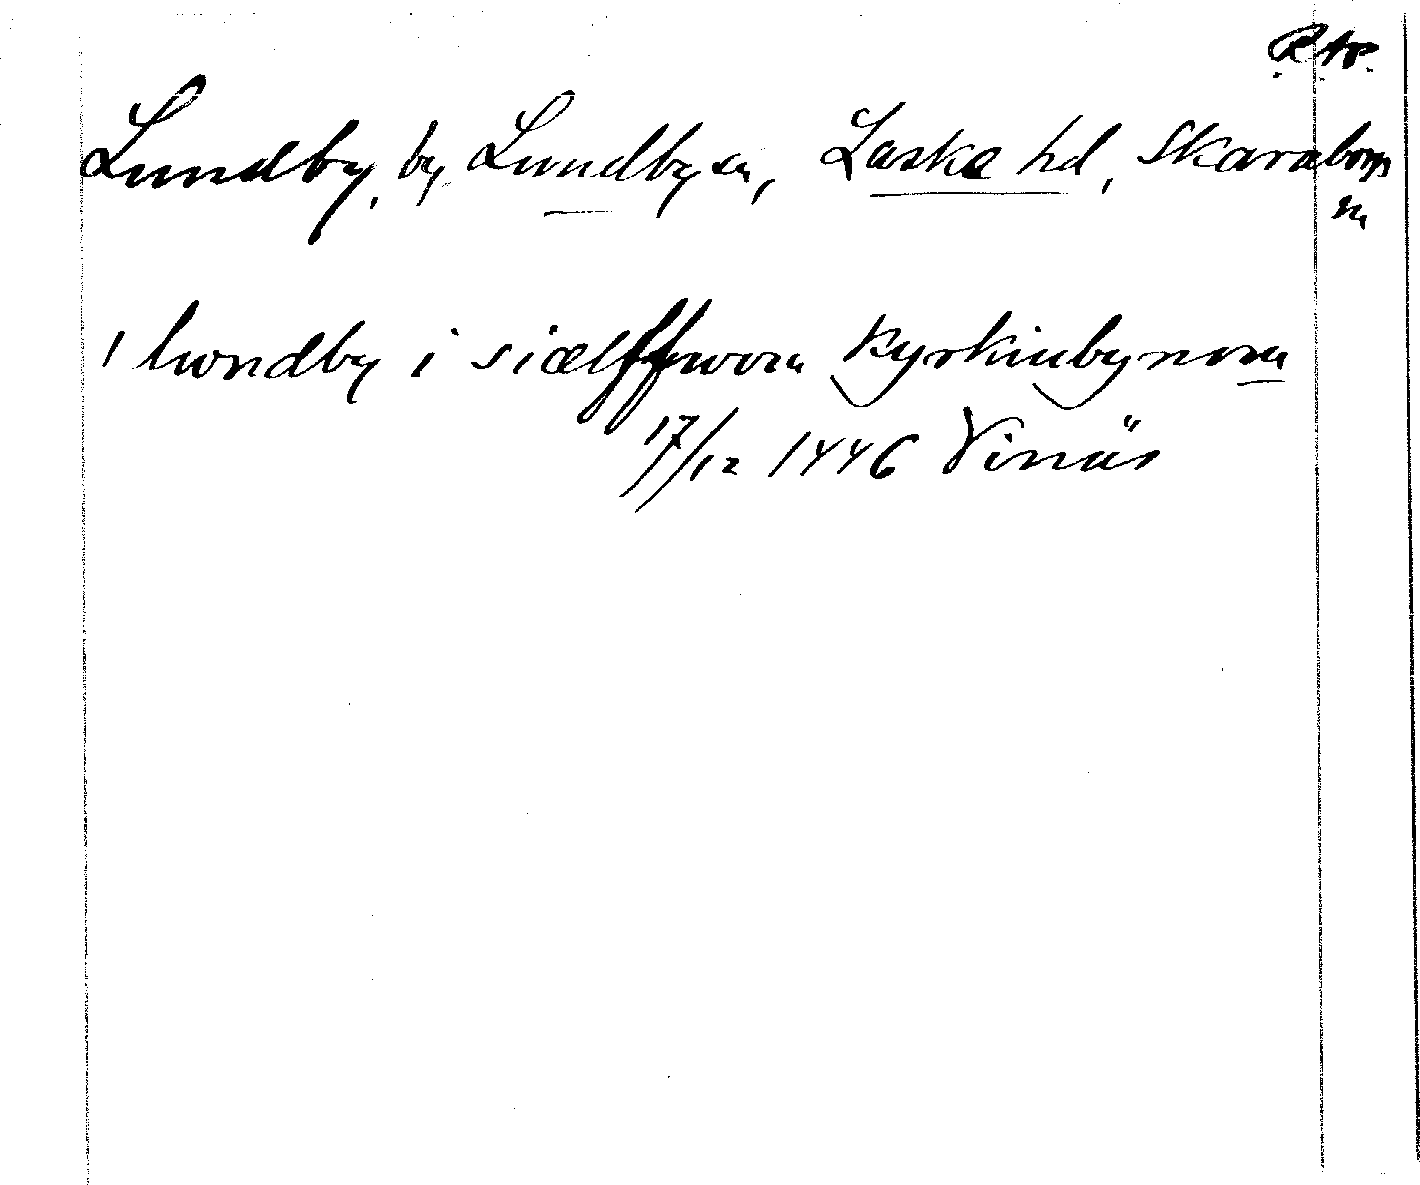 R Ap.
Lundby, by, Lundby sn, Laske hd, Skaraborgs
l.
i lwndby i siælffwom kyrkiubynom
17/12 1446 Vinäs